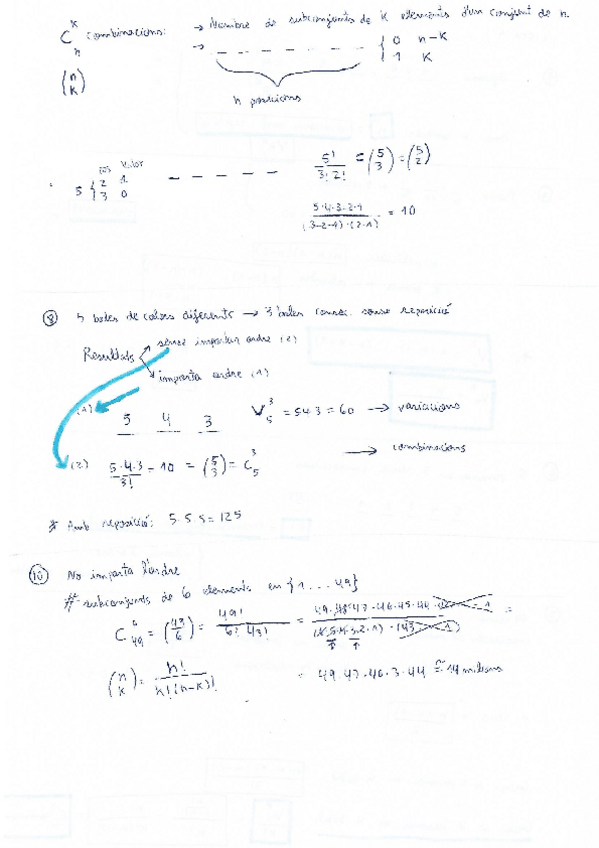 C_n^k combinacions: → Nombre de subconjunts de k elements d'un conjunt de n.
→ _ _ _ _ _ _ { 0 n-k
1 k
(n k)
n posicions
valor
5 { 2 1
3 0
_ _ _ _ _
5! / 3! 2! = (5 3) = (5 2)
5·4·3·2·1 / (3·2·1)·(2·1) = 10
⑧ 5 boles de colors diferents → 3 boles sense reposició
Resultats
sense importar ordre (2)
importa ordre (1)
(1) 5 4 3 V_5^3 = 5·4·3 = 60 → variacions
(2) 5·4·3 / 3! = 10 = (5 3) = C_5^3 → combinacions
* Amb reposició: 5·5·5 = 125
⑩ No importa l'ordre
# subconjunts de 6 elements en {1 ... 49}
C_49^6 = (49 6) = 49! / 6! 43! = 49·48·47·46·45·44 / (6·5·4·3·2·1) =
(n k) = n! / k!(n-k)!
= 49·47·46·3·44 ≅ 14 milions